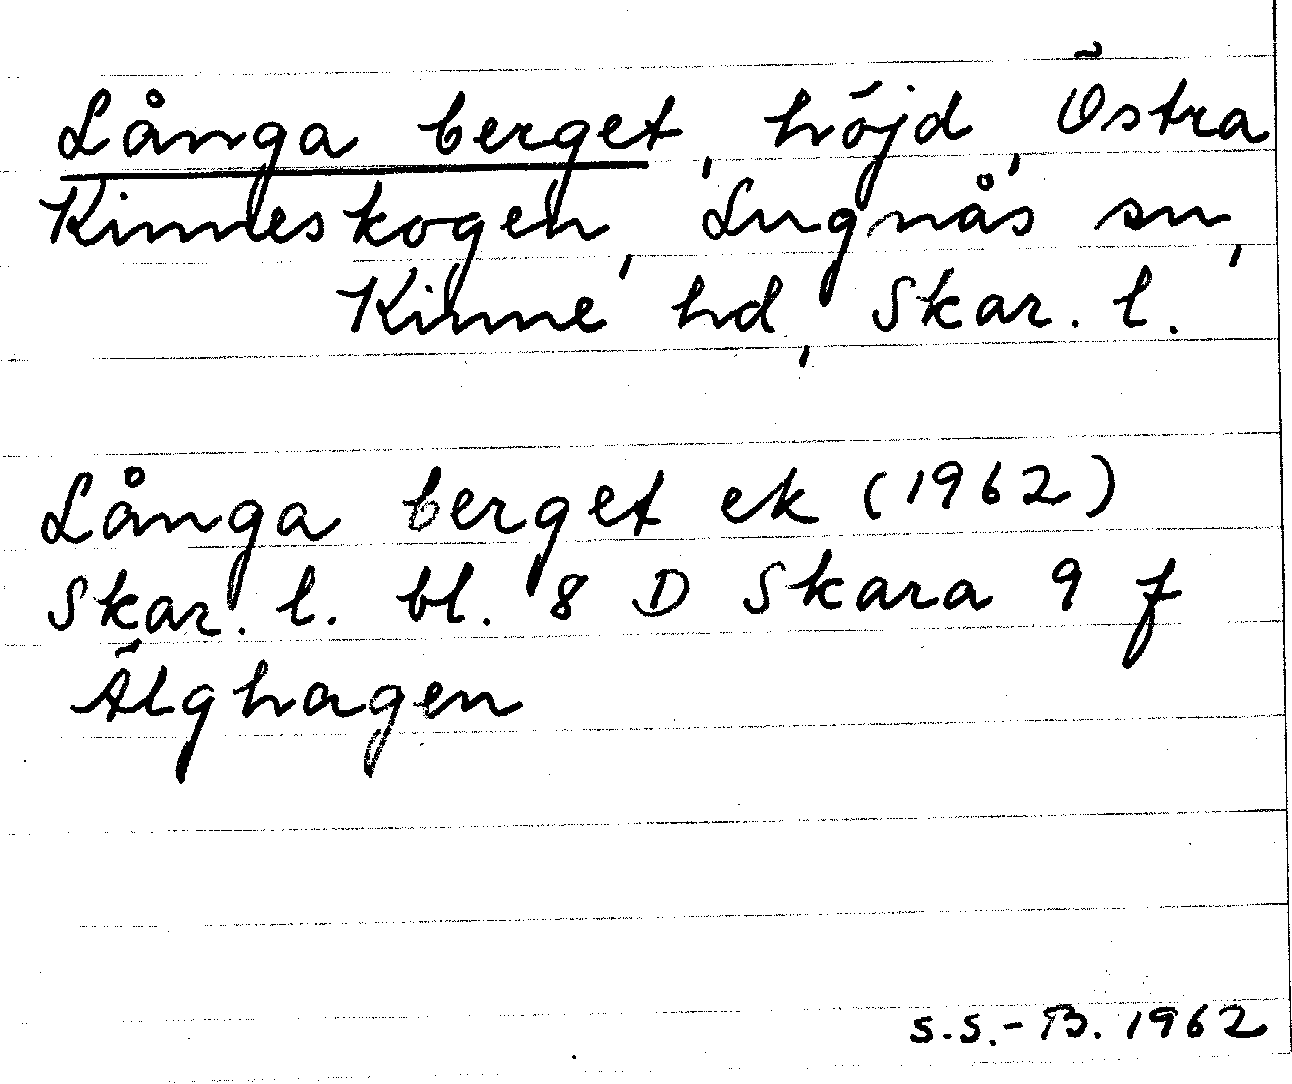 Långa berget, höjd, Östra
Kinneskogen, Lugnås sn,
Kinne hd, Skar. l.
Långa berget ek (1962)
Skar. l. bl. 8 D Skara 9 f
Älghagen
S.S.-B. 1962